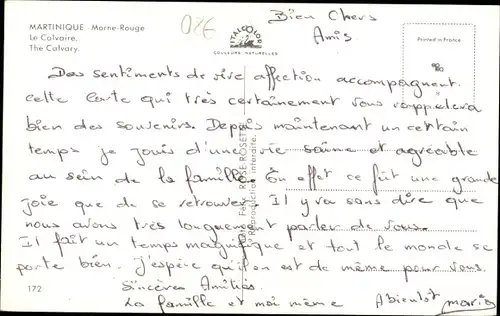 MARTINIQUE - Morne-Rouge
Le Calvaire.
The Calvary.
ITALCOLOR
COULEURS NATURELLES
Printed in France
Bien Chers
Amis
Des sentiments de vive affection accompagnent
cette Carte qui très certainement vous rappelera
bien des souvenirs. Depuis maintenant un certain
temps je jouis d'une vie saine et agréable
au sein de la famille. En effet ce fût une grande
joie que de se retrouver. Il y va sans dire que
nous avons très longuement parler de vous.
Il fait un temps magnifique et tout le monde se
porte bien. J'espère qu'il en est de même pour vous.
Sincères Amitiés.
La famille et moi même A bientôt Mario
172
Reproduction interdite.